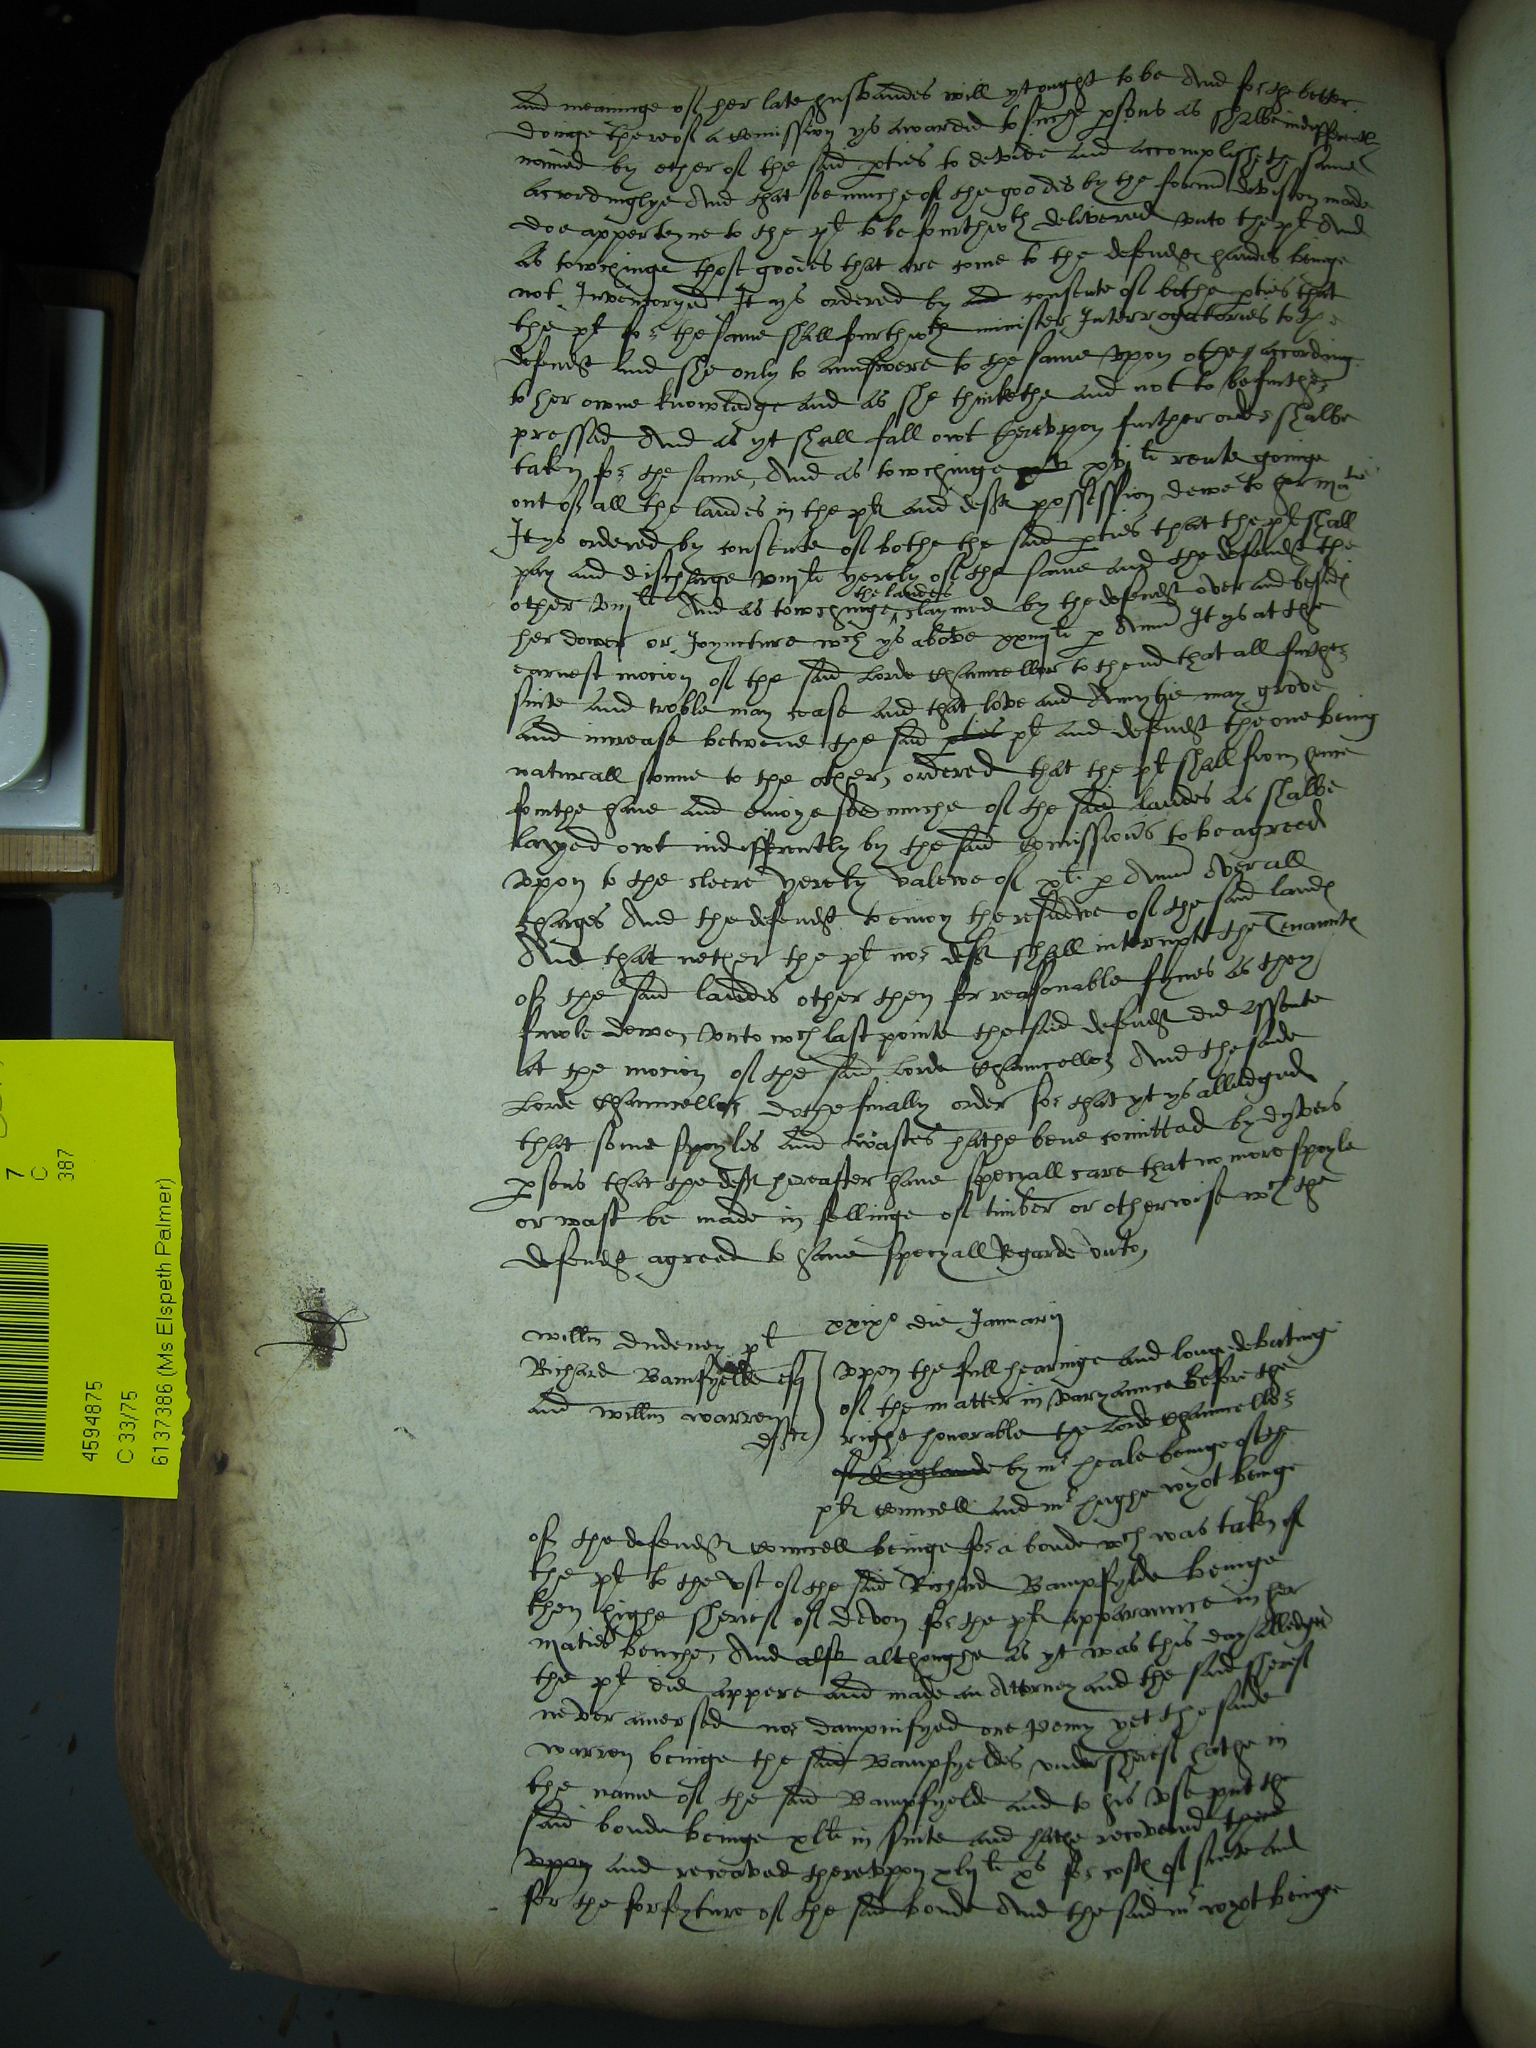 and meaninge of her late husbandes will yt ought to be And for the better
doinge thereof a comission ys awarded to suche psons as shalbe indifferently
named by ether of the said pties to devide and accomplishe the same
accordinglye And that soe muche of the goodes by the former devision made
doe apperteyne to the pl to be furthwth delivered vnto the pl And
as towchinge those goodes that are come to the defendtes handes beinge
not Inventoryed It ys ordered by consente of bothe pties that
the pl for the same shall furthwth minister Interrogatories to the
defendt And she only to aunswere to the same vpon othe according
to her owne knowledge and as she thinkethe and not to be further
pressed And as yt shall fall owt herevpon further order shalbe
taken for the same, And as towchinge xvjli rente goinge
out of all the landes in the pl and deftes possession dewe to her matie
It ys ordered by consente of bothe the said pties that the pl shall
pay and discharge viijli yerely of the same and the defendt the
other viijli And as towchinge the landes claymed by the defendt over and besides
her dower or Joyncture wch ys above xxiiijli p Annu It ys at the
earnest mocion of the said Lorde Chauncellor to thend that all further
suite and troble may cease and that love and Amytie may growe
and increase betwene the said pties pl and defendt the one being
naturall sonne to the other, ordered that the pl shall from hence
furthe have and enioye soe muche of the said landes as shalbe
layed owt indifferently by the said comissioners to be agreed
vpon to the cleere yerely valewe of xli p Annu Over all
charges And the defendt to enioy the residewe of the said landes
And that nether the pl nor deft shall interrupte the Tenauntes
of the said landes other then for reasonable fynes as they
fawle dewe, Vnto wch last pointe the said defendt did assente
At the mocion of the said Lorde Chauncellor And the saide
Lorde Chauncellor dothe finally order for that yt ys alledged
that some spoyles and wastes hathe bene comitted by dyvers
psons that the deft hereafter have specyall care that no more spoyle
or wast be made in fellinge of timber or otherwise wch the
defendt agreed to have specyall Regarde vnto,
xxixo die Januarij
Willm Dudeney pl
Richard Bamfyelde esq
and Willm Warren
deftes
Vpon the full hearinge and longe debatinge
of the matter in varyaunce before the
right honorable the Lorde Chauncellor
of Englande by mr heale beinge of the
ples councell and mr hughe wyot beinge
of the defendtes councell beinge for a bonde wch was taken of
the pl to the vse of the said Richard Bampfylde beinge
then highe sherief of devon for the ples apparaunce in her
maties benche, And also althoughe as yt was this day alledged
the pl did appere and made an Attorney and the said sherief
never amersed nor dampnifyed one peny yet the saide
warren beinge the said Bampfyeldes vndersherief hathe in
the name of the said Bampfyelde and to his vse put the
said bonde beinge xlli in suite and hathe recovered there
vppon and receaved therevpon xlijli xs for costes of suite and
for the forfeyture of the said bonde And the said mr wyot beinge
7
C
387
4594875
C 33/75
6137386 (Ms Elspeth Palmer)